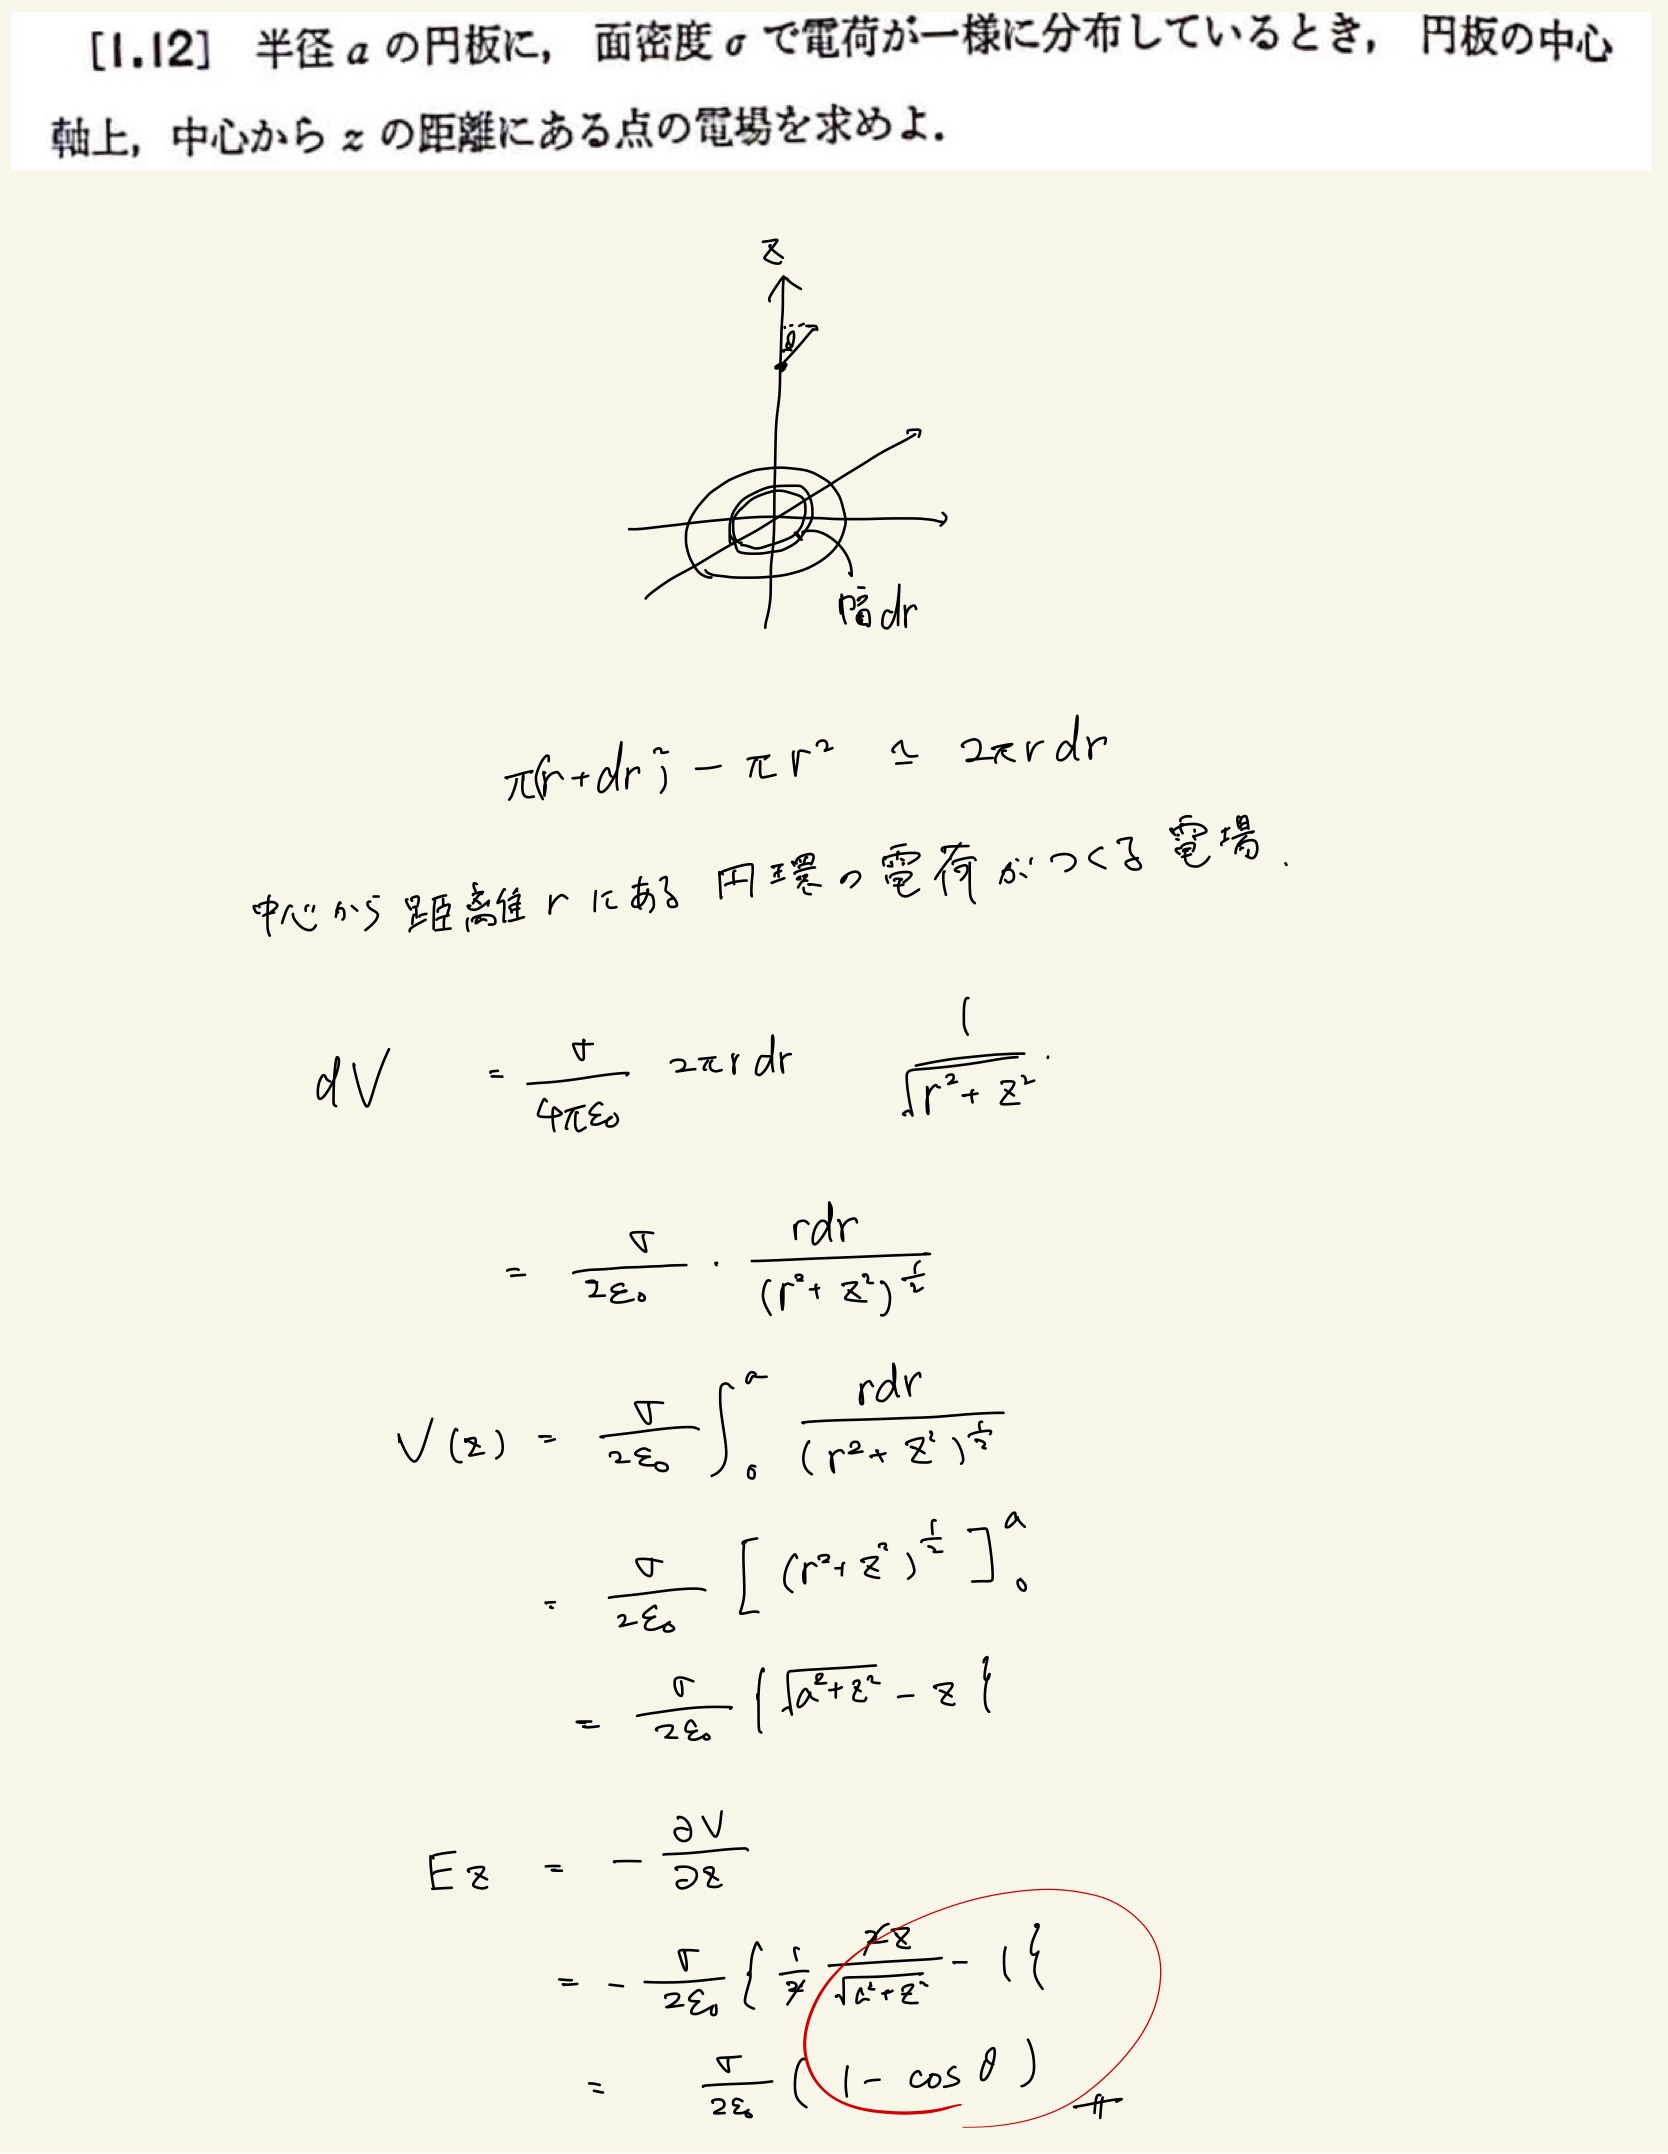 [1.12] 半径 a の円板に, 面密度 σ で電荷が一様に分布しているとき, 円板の中心
軸上, 中心から z の距離にある点の電場を求めよ.
z
θ
幅dr
π(r+dr)² − πr² ≃ 2πr dr
中心から 距離 r にある 円環の電荷がつくる電場.
dV = σ/4πε₀ 2πr dr 1/√(r²+z²).
= σ/2ε₀ · rdr/(r²+z²)^(1/2)
V(z) = σ/2ε₀ ∫₀^a rdr/(r²+z²)^(1/2)
= σ/2ε₀ [(r²+z²)^(1/2)]₀^a
= σ/2ε₀ {√(a²+z²) − z}
Ez = − ∂V/∂z
= − σ/2ε₀ {1/2 2z/√(a²+z²) − 1}
= σ/2ε₀ (1 − cos θ)